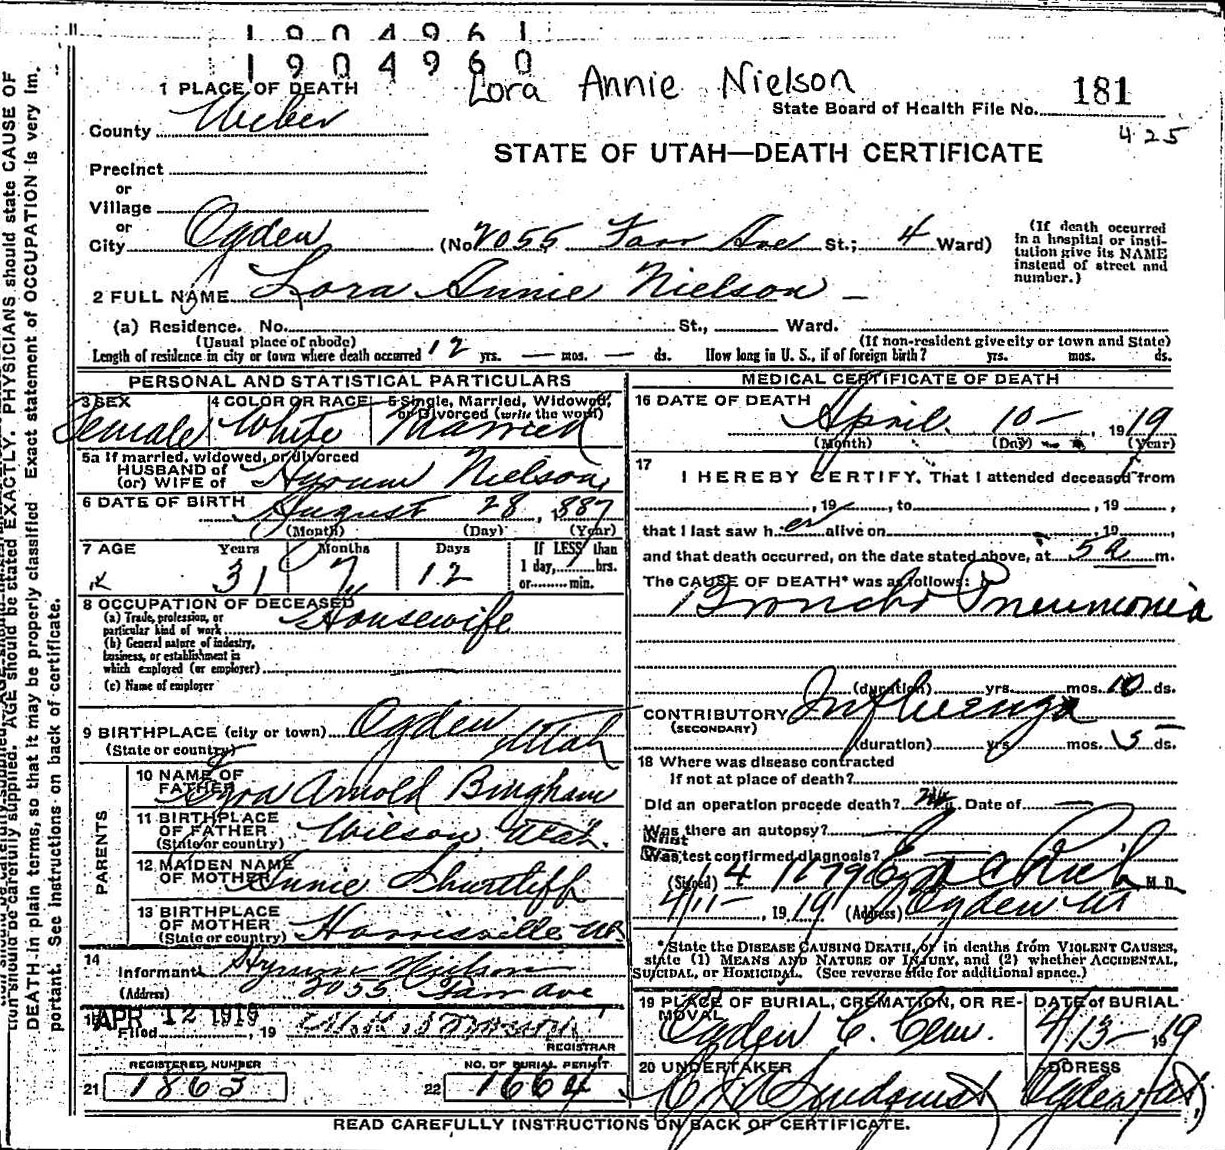 1904961
1904960
Lora Annie Nielson
1 PLACE OF DEATH
State Board of Health File No. 181
425
County Weber
STATE OF UTAH—DEATH CERTIFICATE
Precinct
or
Village
or
City Ogden (No. 2055 Farr Ave St.; 4 Ward)
(If death occurred in a hospital or institution give its NAME instead of street and number.)
2 FULL NAME Lora Annie Nielson
(a) Residence. No. St., Ward.
(Usual place of abode) (If non-resident give city or town and State)
Length of residence in city or town where death occurred 12 yrs. — mos. — ds. How long in U. S., if of foreign birth? yrs. mos. ds.
PERSONAL AND STATISTICAL PARTICULARS
3 SEX Female
4 COLOR OR RACE White
5 Single, Married, Widowed, or Divorced (write the word) Married
5a If married, widowed, or divorced
HUSBAND of
(or) WIFE of Hyrum Nielson
6 DATE OF BIRTH August 28, 1887
(Month) (Day) (Year)
7 AGE Years 31 Months 7 Days 12 If LESS than 1 day, hrs. or min.
8 OCCUPATION OF DECEASED Housewife
(a) Trade, profession, or particular kind of work
(b) General nature of industry, business, or establishment in which employed (or employer)
(c) Name of employer
9 BIRTHPLACE (city or town) Ogden
(State or country) Utah
PARENTS
10 NAME OF FATHER Ezra Arnold Bingham
11 BIRTHPLACE OF FATHER (State or country) Wilson, Utah.
12 MAIDEN NAME OF MOTHER Annie Shurtliff
13 BIRTHPLACE OF MOTHER (State or country) Harrisville Ut.
14 Informant Hyrum Nielson
(Address) 2055 Farr Ave
Filed APR 12 1919, 19
REGISTRAR
REGISTERED NUMBER
21 1863
NO. OF BURIAL PERMIT
22 1664
MEDICAL CERTIFICATE OF DEATH
16 DATE OF DEATH April 10—, 1919
(Month) (Day) (Year)
17 I HEREBY CERTIFY, That I attended deceased from
, 19 , to , 19 ,
that I last saw her alive on 19 ,
and that death occurred, on the date stated above, at 5 a m.
The CAUSE OF DEATH* was as follows:
Broncho Pneumonia
(duration) yrs. mos. 10 ds.
CONTRIBUTORY Influenza
(SECONDARY)
(duration) yrs mos. 5 ds.
18 Where was disease contracted
If not at place of death?
Did an operation precede death? Date of
Was there an autopsy?
What test confirmed diagnosis?
(Signed) Rich M.D.
4/11—, 1919 (Address) Ogden Ut
*State the DISEASE CAUSING DEATH, or in deaths from VIOLENT CAUSES, state (1) MEANS AND NATURE OF INJURY, and (2) whether ACCIDENTAL, SUICIDAL, or HOMICIDAL. (See reverse side for additional space.)
19 PLACE OF BURIAL, CREMATION, OR REMOVAL Ogden C. Cem.
DATE of BURIAL 4/13—1919
20 UNDERTAKER Lindquist
ADDRESS Ogden, Ut
READ CAREFULLY INSTRUCTIONS ON BACK OF CERTIFICATE.
AGE should be stated EXACTLY. PHYSICIANS should state CAUSE OF
DEATH in plain terms, so that it may be properly classified. Exact statement of OCCUPATION is very im-
portant. See instructions on back of certificate.